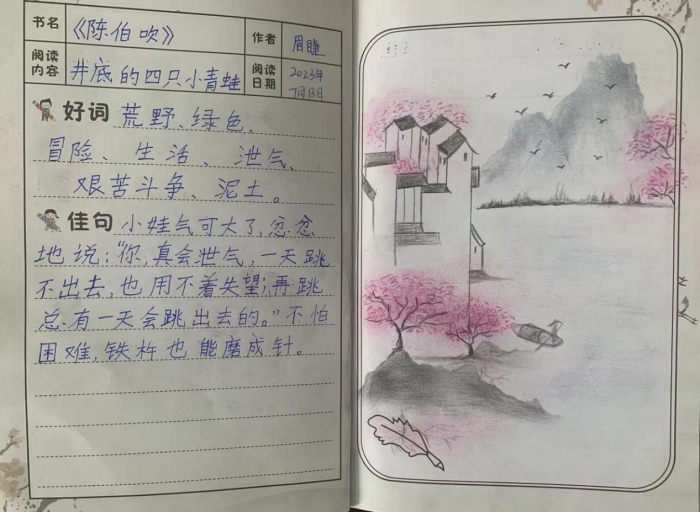 书名 《陈伯吹》 作者 周睫
阅读内容 井底的四只小青蛙 阅读日期 2023年7月13日
好词 荒野、绿色、
冒险、生活、泄气、
艰苦斗争、泥土。
佳句 小娃气可大了,忿忿
地说:“你,真会泄气,一天跳
不出去,也用不着失望;再跳
总有一天会跳出去的。”不怕
困难,铁杵也能磨成针。